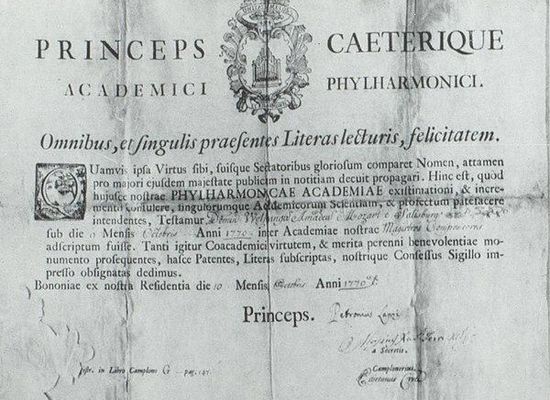 PRINCEPS CAETERIQUE
ACADEMICI PHYLHARMONICI.
Omnibus, et singulis praesentes Literas lecturis, felicitatem.
QUamvis ipsa Virtus sibi, suisque Sectatoribus gloriosum comparet Nomen, attamen
pro majori ejusdem majestate publicam in notitiam decuit propagari. Hinc est, quod
hujusce nostrae PHYLHARMONCAE ACADEMIAE existimationi, & incre-
mento consulere, singulorumque Academicorum Scientiam, & profectum patefacere
intendentes, Testamur Wolfgangum Amadeum Mozart e Salisburg
sub die 9 Mensis Octobris Anni 1770 inter Academiae nostrae Magistros Compositores
adscriptum fuisse. Tanti igitur Coacademici virtutem, & merita perenni benevolentiae mo-
numento prosequentes, hasce Patentes, Literas subscriptas, nostrique Consessus Sigillo im-
presso obsignatas dedimus.
Bononiae ex nostra Residentia die 10 Mensis Octobris Anni 1770
Princeps. Petronius Lanzi
a Secretis.
Camplonerius.
in Libro Camplono G pag. 147